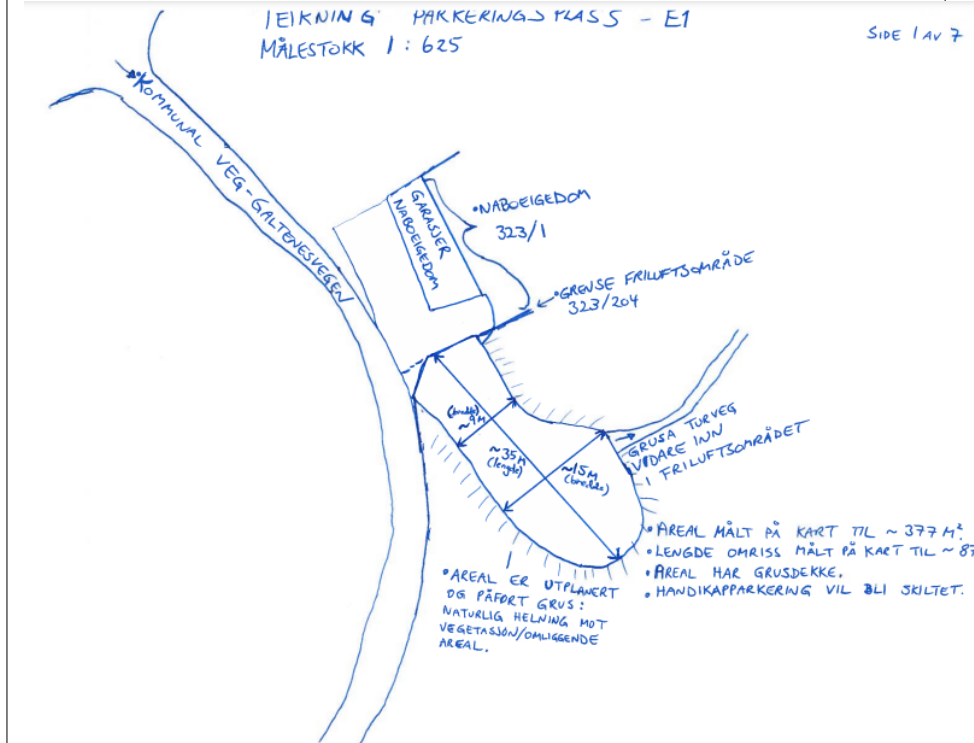 TEIKNING PARKERINGSPLASS - E1
MÅLESTOKK 1 : 625
SIDE 1 AV 7
KOMMUNAL VEG-GALTENESVEGEN
GARASJER
NABOEIGEDOM
•NABOEIGEDOM
323/1
•GRENSE FRILUFTSOMRÅDE
323/204
(bredde)
~9M
~35M
(lengde)
~15M
(bredde)
GRUSA TURVEG
VIDARE INN
I FRILUFTSOMRÅDET
•AREAL MÅLT PÅ KART TIL ~ 377 M².
•LENGDE OMRISS MÅLT PÅ KART TIL ~ 87
•AREAL HAR GRUSDEKKE.
•HANDIKAPPARKERING VIL BLI SKILTET.
•AREAL ER UTPLANERT
OG PÅFØRT GRUS:
NATURLIG HELNING MOT
VEGETASJON/OMLIGGENDE
AREAL.